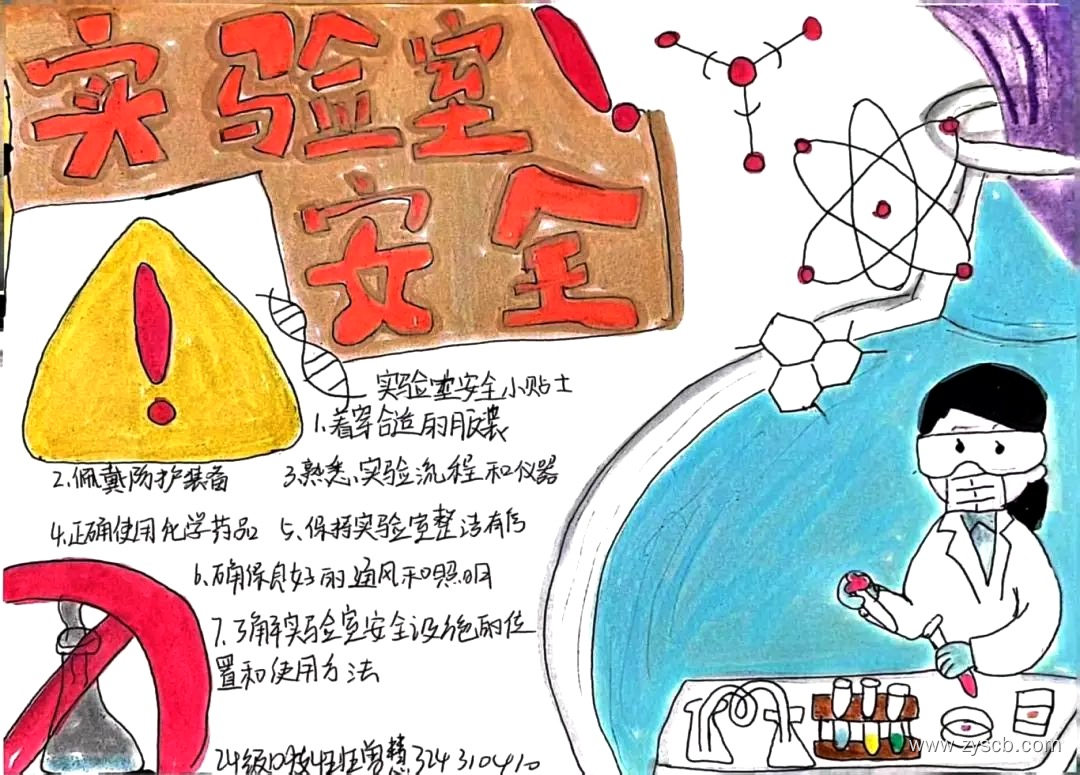 实验室
安全!
!
实验室安全小贴士
1.着穿合适的服装
2.佩戴防护装备 3.熟悉实验流程和仪器
4.正确使用化学药品 5、保持实验室整洁有
6.确保良好的通风和照明
7.了解实验室安全设施的位
置和使用方法
24级 324310410
www.zyscb.com